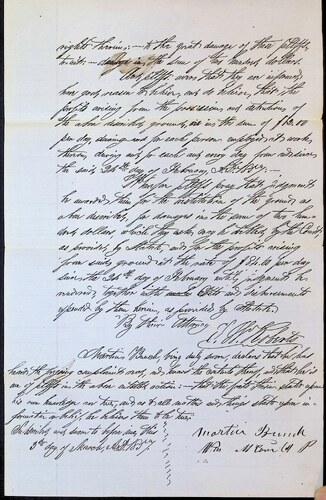 rights therein; — to the great damage of these plffs,
to wit: — damage in the sum of two hundred dollars.
And plffs aver that they are informed,
have good reason to believe, and do believe, that the
profits arising from the possession and detention of
the above described ground, is in the sum of $
per day, during and for each person employed at work
therein, during and for each and every day from and since
the said 26th day of February, A.D. 1857.
Wherefore Plffs pray that judgment
be awarded them for the restitution of the ground, as
above described, for damages in the sume of two hun-
dred dollars which they ask may be by the Court,
as provided by Statute, and for the profits arising
from said ground at the rate of per day
since the 26th day of February until judgment be
rendered, together with costs and disbursements
expended by them herein, as provided by Statute.
By their Attorney
Martin Bunch being duly sworn, declares that he has
heard the foregoing complaint read, and knows the contents thereof, and that he is
one of plffs in the above entitled action: — that the facts therein stated upon
his own knowledge are true, and as to all matters and things stated upon in-
formation or belief, he believes them to be true.
Subscribed and sworn to before me, this
3rd day of March, A.D. 1857.
Martin Bunch
Wm